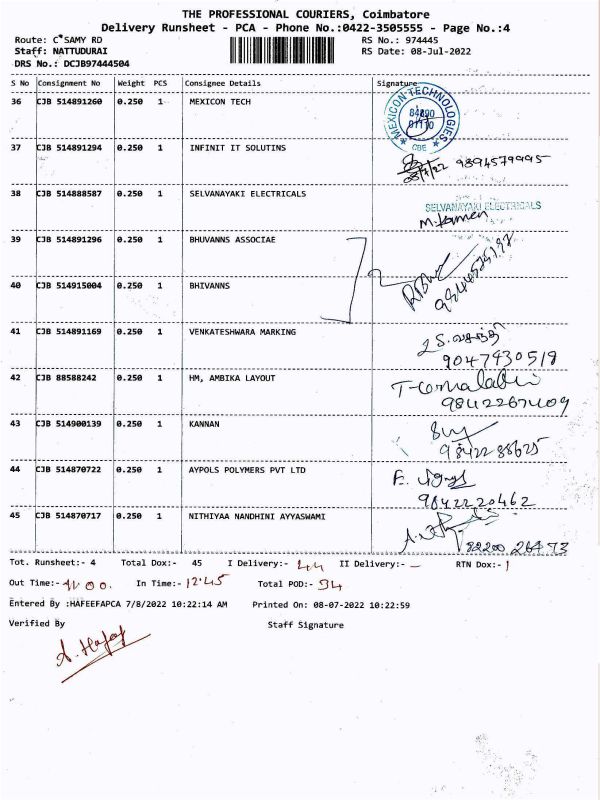 THE PROFESSIONAL COURIERS, Coimbatore
Delivery Runsheet - PCA - Phone No.:0422-3505555 - Page No.:4
Route: C*SAMY RD
RS No.: 974445
Staff: NATTUDURAI
RS Date: 08-Jul-2022
DRS No.: DCJB97444504
S No Consignment No Weight PCS Consignee Details Signature
36 CJB 514891260 0.250 1 MEXICON TECH
MEXICON TECHNOLOGIES
CBE
37 CJB 514891294 0.250 1 INFINIT IT SOLUTINS
9894579995
38 CJB 514888587 0.250 1 SELVANAYAKI ELECTRICALS
SELVANAYAKI ELECTRICALS
39 CJB 514891296 0.250 1 BHUVANNS ASSOCIAE
40 CJB 514915004 0.250 1 BHIVANNS
41 CJB 514891169 0.250 1 VENKATESHWARA MARKING
42 CJB 88588242 0.250 1 HM, AMBIKA LAYOUT
43 CJB 514900139 0.250 1 KANNAN
44 CJB 514870722 0.250 1 AYPOLS POLYMERS PVT LTD
9842220462
45 CJB 514870717 0.250 1 NITHIYAA NANDHINI AYYASWAMI
Tot. Runsheet:- 4 Total Dox:- 45 I Delivery:- 44 II Delivery:- - RTN Dox:- 1
Out Time:- 11.00. In Time:- 12.45 Total POD:- 34
Entered By :HAFEEFAPCA 7/8/2022 10:22:14 AM Printed On: 08-07-2022 10:22:59
Verified By Staff Signature